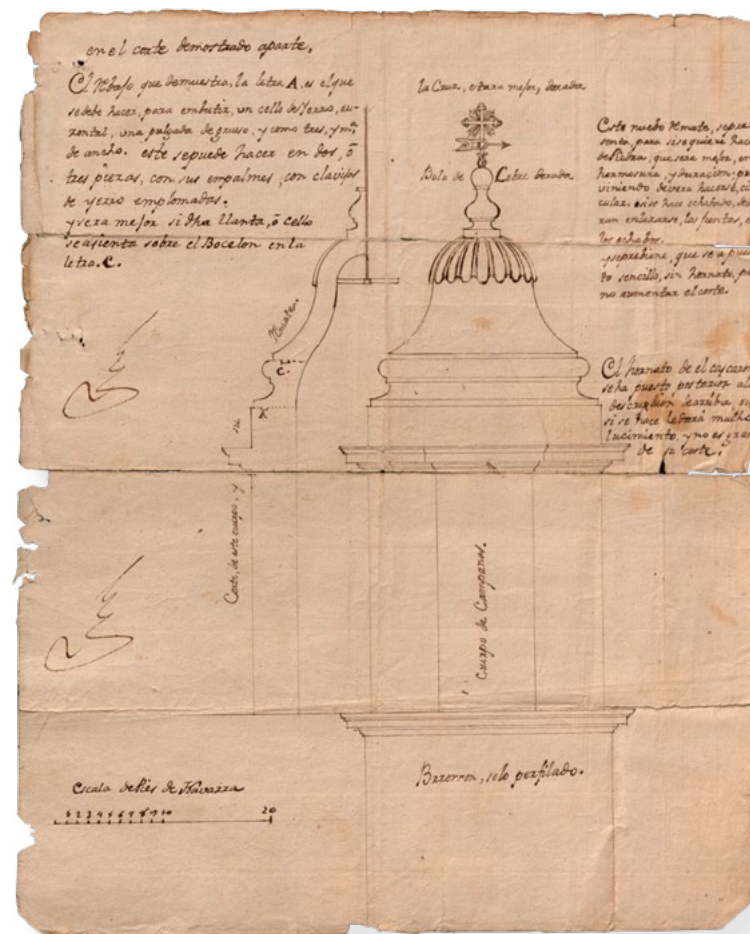 en el corte demostrado aparte.
El rebajo que demuestra, la letra A, es el que
se debe hacer, para embutir, un cello de yerro, ou-
rontal, una pulgada de grueso, y como tres, y mª
de ancho. este se puede hacer en dos, ô
tres piezas, con sus empalmes, con clavijas
de yerro emplomadas.
y sera mejor si dha llanta, ô cello
se asienta sobre el Bocelon en la
letra. C.
la Cruz, estara mejor, dorada
Bola de Cobre dorada
Este nuebo Remate, se pre
senta, para si se quiere hace
de Piedra, que sera mejor, en
hermosura, y duracion, pre
viniendo devera hacerse, cir
cular, o si se hace ochabado, de
ran enlazarse, las juntas, e
los ochabos.
y se prebiene, que se a pues
to sencillo, sin hornato, po
no aumentar el corte.
El hornato de el cascaron
se ha puesto posterior a l
descripcion de arriba, qu
si se hace le dará mucho
lucimiento, y no es gran
de su corte.
Remate.
C.
A
su
Corte, de este cuerpo, y
Cuerpo de Campanas.
Bazorron, solo perfilado.
Escala de Pies de Navarra
1 2 3 4 5 6 7 8 9 10 20